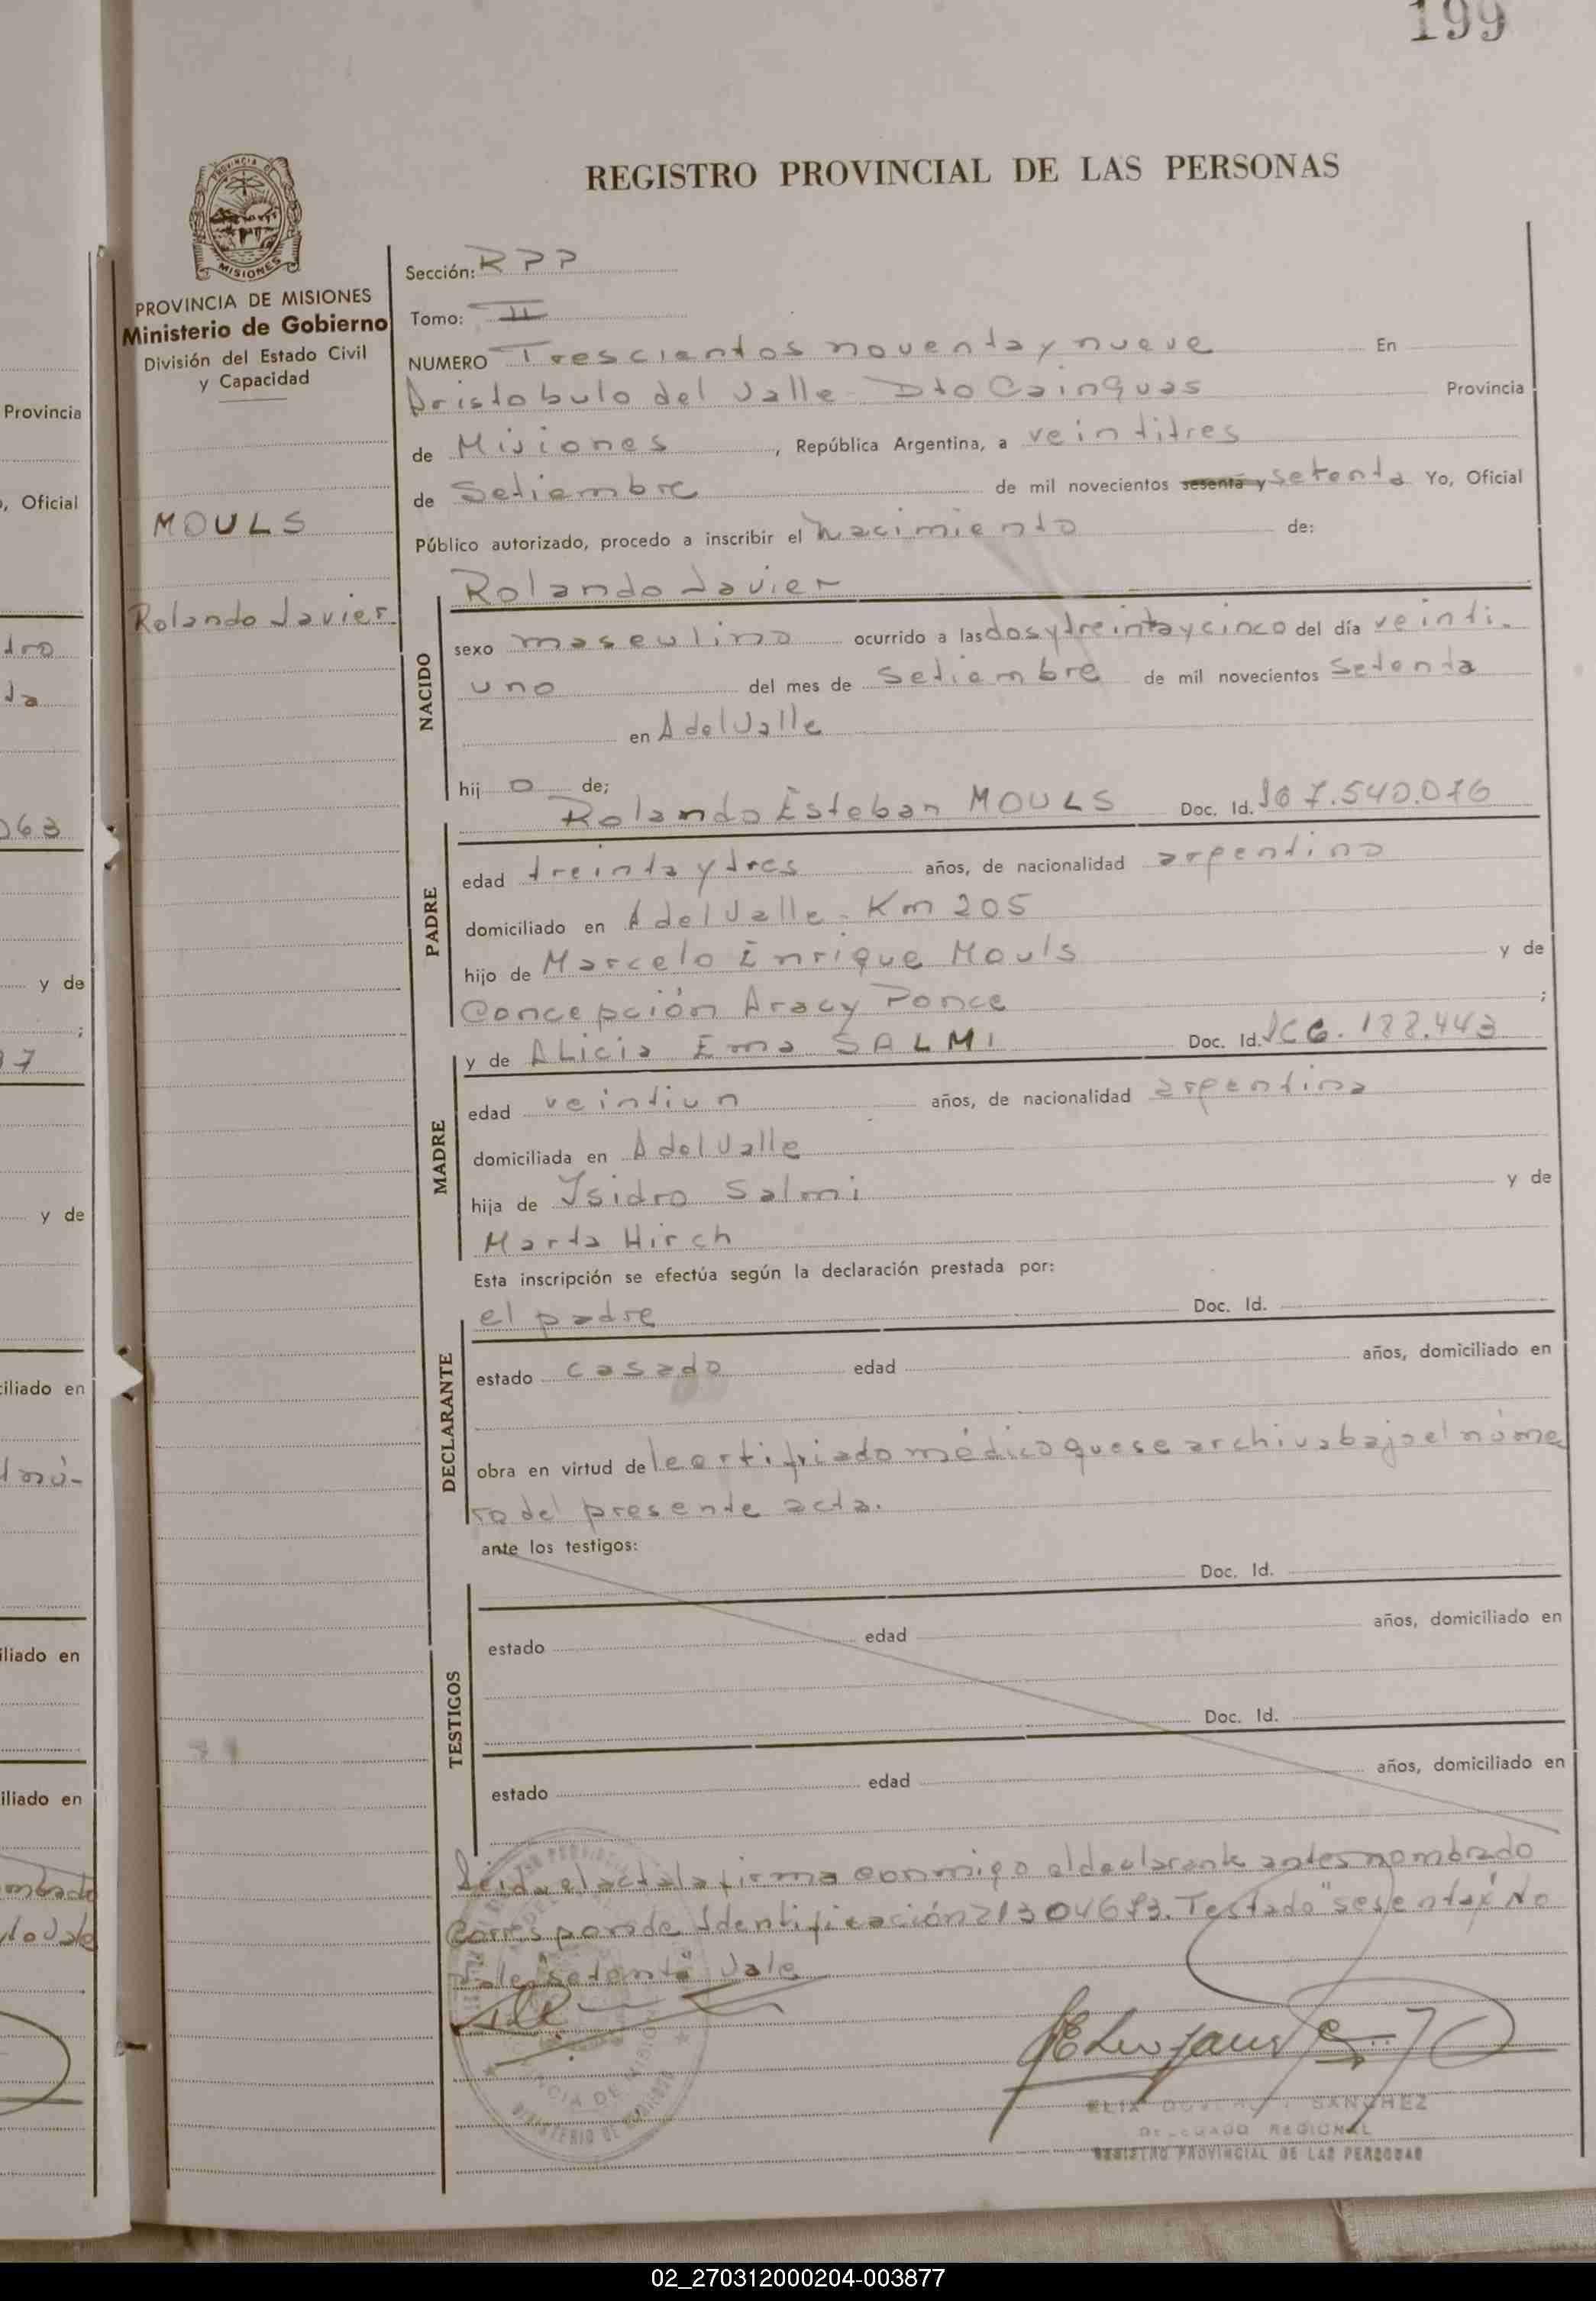 199
REGISTRO PROVINCIAL DE LAS PERSONAS
PROVINCIA DE MISIONES
Ministerio de Gobierno
División del Estado Civil
y Capacidad
MOULS
Rolando Javier
Sección: RPP
Tomo: II
NUMERO Trescientos noventa y nueve En
Aristobulo del Valle - Dto Cainguas Provincia
de Misiones, República Argentina, a veintitres
de Setiembre de mil novecientos sesenta y setenta Yo, Oficial
Público autorizado, procedo a inscribir el nacimiento de:
Rolando Javier
NACIDO
sexo masculino ocurrido a las dos y treinta y cinco del día veinti-
uno del mes de Setiembre de mil novecientos setenta
en A del Valle
hijo de;
Rolando Esteban MOULS Doc. Id. 7.540.076
PADRE
edad treinta y tres años, de nacionalidad argentino
domiciliado en A del Valle - Km 205
hijo de Marcelo Enrique Mouls y de
Concepción Aracy Ponce ;
y de Alicia Ema SALMI Doc. Id. LC 6.188.443
MADRE
edad veintiun años, de nacionalidad argentina
domiciliada en A del Valle
hija de Isidro Salmi y de
Marta Hirch
Esta inscripción se efectúa según la declaración prestada por:
el padre Doc. Id.
DECLARANTE
estado casado edad años, domiciliado en
obra en virtud del certificado médico que se archiva bajo el núme
ro del presente acta.
ante los testigos:
Doc. Id.
TESTIGOS
estado edad años, domiciliado en
Doc. Id.
estado edad años, domiciliado en
Leida el acta la firma conmigo el declarante antes nombrado
Corresponde Identificación 21304693. Testado "sesenta y" No
vale "setenta" Vale
SANCHEZ
DELEGADO REGIONAL
REGISTRO PROVINCIAL DE LAS PERSONAS
Provincia
, Oficial
063
y de
;
y de
iliado en
l nú-
iliado en
iliado en
02_270312000204-003877